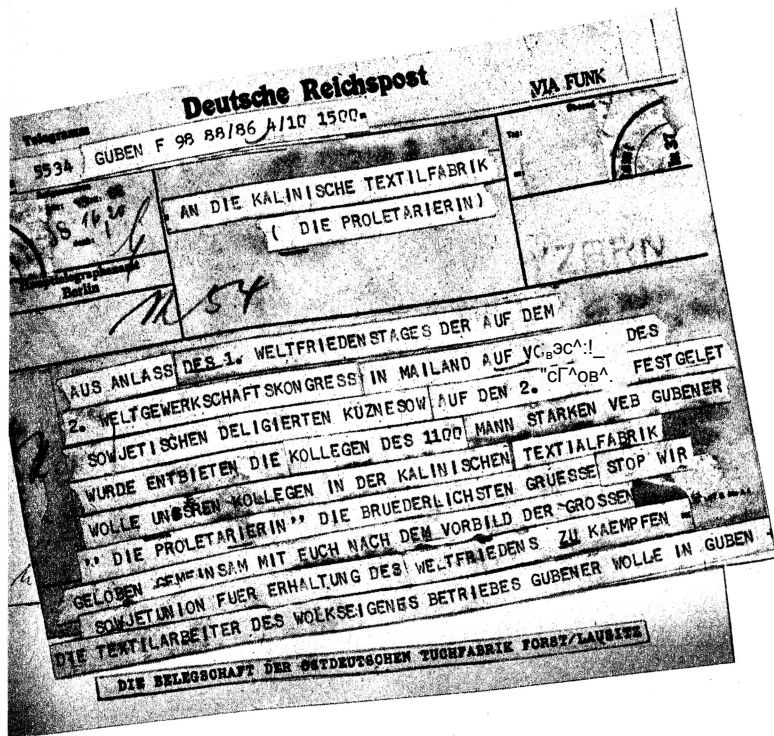 Deutsche Reichspost
Telegramm
VIA FUNK
5534 GUBEN F 98 88/86 4/10 1500.
AN DIE KALINISCHE TEXTILFABRIK
( DIE PROLETARIERIN)
Haupttelegraphenamt
Berlin
M 54
AUS ANLASS DES 1. WELTFRIEDENSTAGES DER AUF DEM
2. WELTGEWERKSCHAFTSKONGRESS IN MAILAND AUF DES
SOWJETISCHEN DELIGIERTEN KUZNESOW AUF DEN 2. FESTGELET
WURDE ENTBIETEN DIE KOLLEGEN DES 1100 MANN STARKEN VEB GUBENER
WOLLE UNSEREN KOLLEGEN IN DER KALINISCHEN TEXTIALFABRIK
,, DIE PROLETARIERIN,, DIE BRUEDERLICHSTEN GRUESSE STOP WIR
GELOBEN GEMEINSAM MIT EUCH NACH DEM VORBILD DER GROSSEN
SOWJETUNION FUER ERHALTUNG DES WELTFRIEDENS ZU KAEMPFEN =
DIE TEXTILARBEITER DES WOLKSEIGENES BETRIEBES GUBENER WOLLE IN GUBEN +
DIE BELEGSCHAFT DER OSTDEUTSCHEN TUCHFABRIK FORST/LAUSITZ